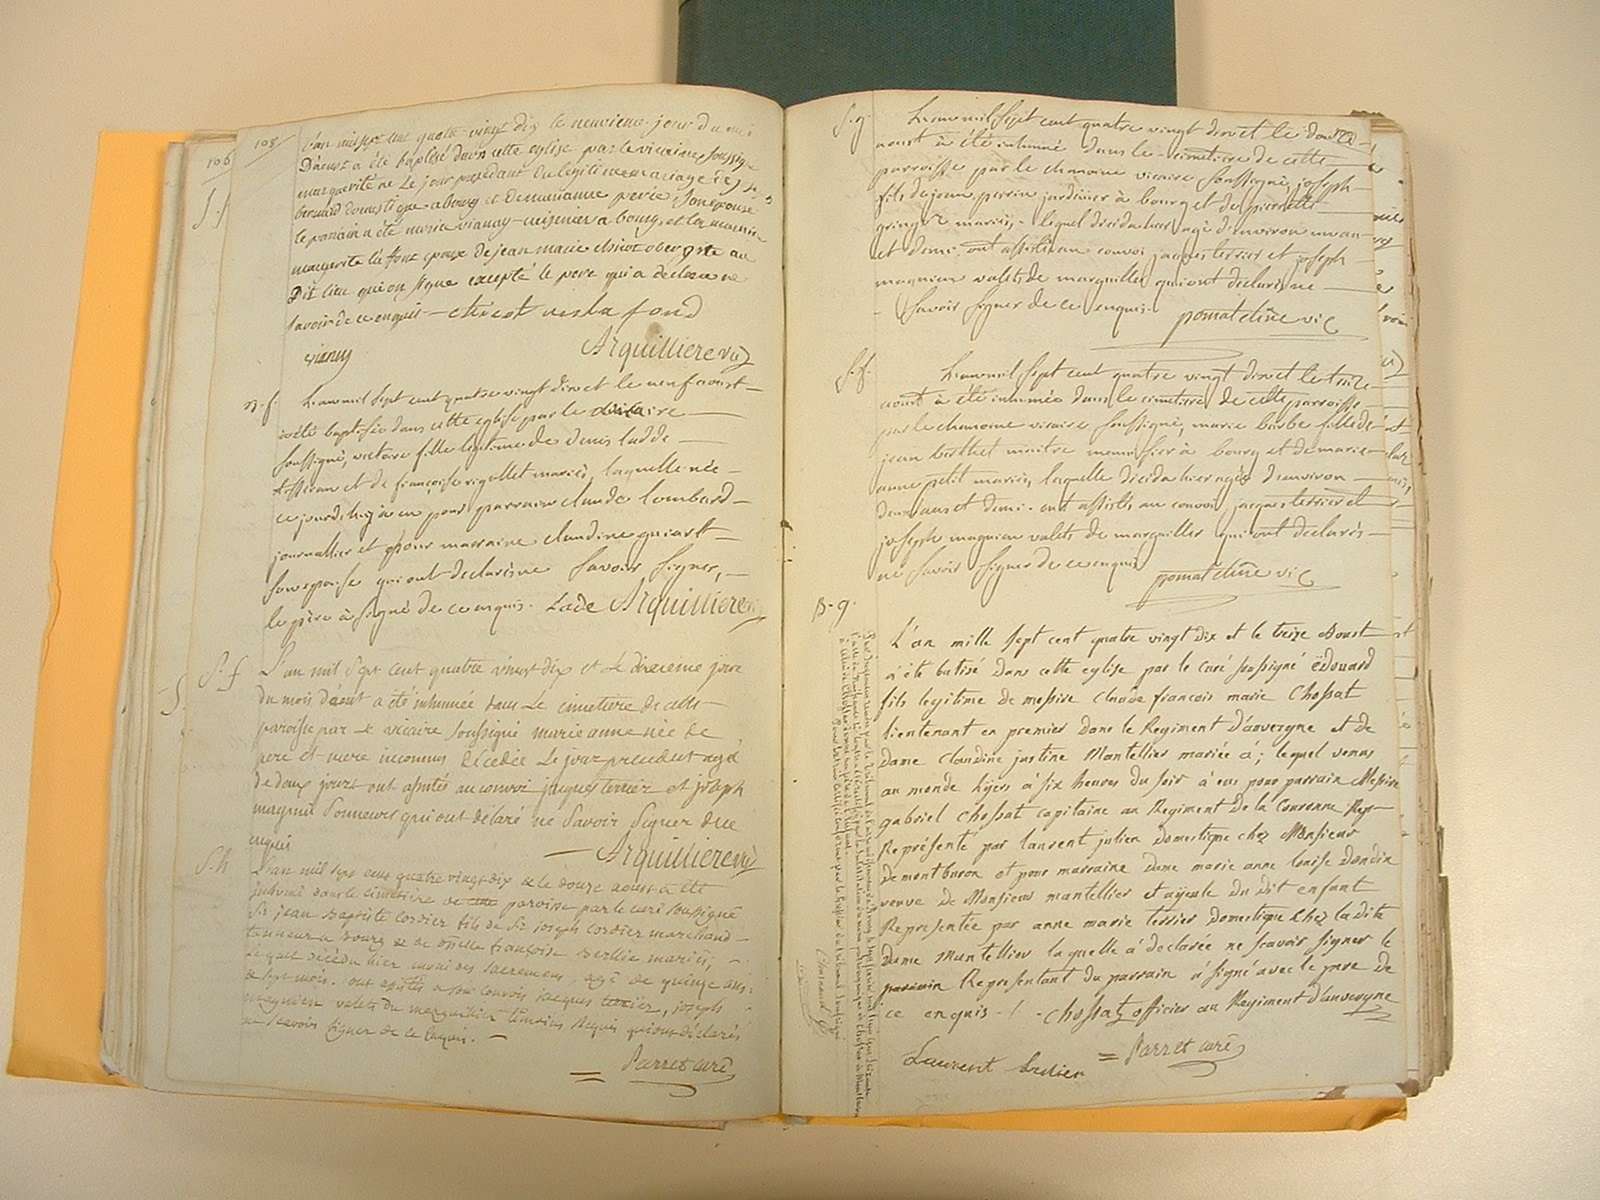 106
108
L'an mil sept cent quatre vingt dix le neuvieme jour du moi
D'aoust a été baptisé dans cette eglise par le vicaire soussigné
marguerite née le jour precedant du legitime mariage de
bernard domestique a bourg et de marianne perrie son epouse
le parrain a été marie viannay cuisinier a bourg et la marraine
marguerite la font epouse de jean marie chicot aubergiste au
Dit lieu qui on signe excepté le pere qui a declaré ne
savoir de ce enquis - chicot la fond
vianay Arquilliere vic
B. f. L'an mil sept cent quatre vingt dix et le neuf aoust
a été baptisée dans cette eglise par le vicaire
soussigné, victoire fille legitime de Denis ladde
et de françoise rigollet mariés, laquelle née
ce jourd'huy à eu pour parrain claude lombard
journallier et pour marraine claudine guiart
son epouse qui ont declarés ne savoir signer,
le père à signé de ce enquis. Lade Arquilliere vic
S. f L'an mil sept cent quatre vingt dix et le dixieme jour
du mois d'aoust a été inhumée dans le cimetiere de cette
paroisse par le vicaire soussigné marie anne née de
pere et mere inconnus décedée le jour precedent agé
de deux jours ont assistés au convoi jacques terrier et joseph
magnin sonneurs qui ont déclaré ne savoir signer de ce
enquis Arquilliere vic
S. h. L'an mil sept cent quatre vingt dix & le douze aoust a été
inhumé dans le cimetiere de cette paroisse par le curé soussigné
Sr jean Baptiste Cordier fils de Sr joseph Cordier marchand
tanneur a Bourg & de françoise mariés;
lequel décédu hier muni des sacremens, agé de quinze ans
& sept mois. ont assistés a son convoi jacques terrier, joseph
magnien valets du marguillier témoins requis qui ont déclarés
ne savoir signer de ce enquis.
= Parret curé
S. g. L'an mil sept cent quatre vingt dix et le douze
aoust à été inhumé dans le cimetiere de cette
parroisse par le chanoine vicaire soussigné, joseph
fils de jean perrin jardinier à bourg et de pierrette
mariés, lequel décéda hier agé d'environ un an
et demi. ont assistés au convoi jacques terrier et joseph
magnien valets de marguillier qui ont declarés ne
savoir signer de ce enquis. pomat chne vic
S. f. L'an mil sept cent quatre vingt dix et le treize
aoust à été inhumée dans le cimetiere de cette parroisse
par le chanoine vicaire soussigné, marie barbe fille de
jean berthet maitre menuisier à bourg et de marie
anne petit mariés, laquelle décéda hier agée d'environ
deux ans et demi. ont assistés au convoi jacques terrier et
joseph magnien valets de marguillier qui ont declarés
ne savoir signer de ce enquis pomat chne vic
B. g.
L'an mille sept cent quatre vingt dix et le treize Aoust
à été batisé dans cette eglise par le curé soussigné Edouard
fils legitime de messire claude francois marie Chossat
lieutenant en premier dans le Regiment D'auvergne et de
dame claudine justine Montellier mariée à; lequel venus
au monde hyer à six heures du soir à eus pour parrain Messire
gabriel Chossat capitaine au Regiment de la Couronne
Représenté par laurent julien domestique chez Monsieur
de montburon et pour marraine dame marie anne louise dandin
veuve de Monsieur montellier et ayeule du dit enfant
Représentée par anne marie terrier domestique Chez la dite
dame Montellier laquelle à declarée ne scavoir signer le
parrain Representant du parrain à signé avec le pere de
ce enquis - ! - chossat officier au Regiment d'auvergne
Laurent Julien = Parret curé